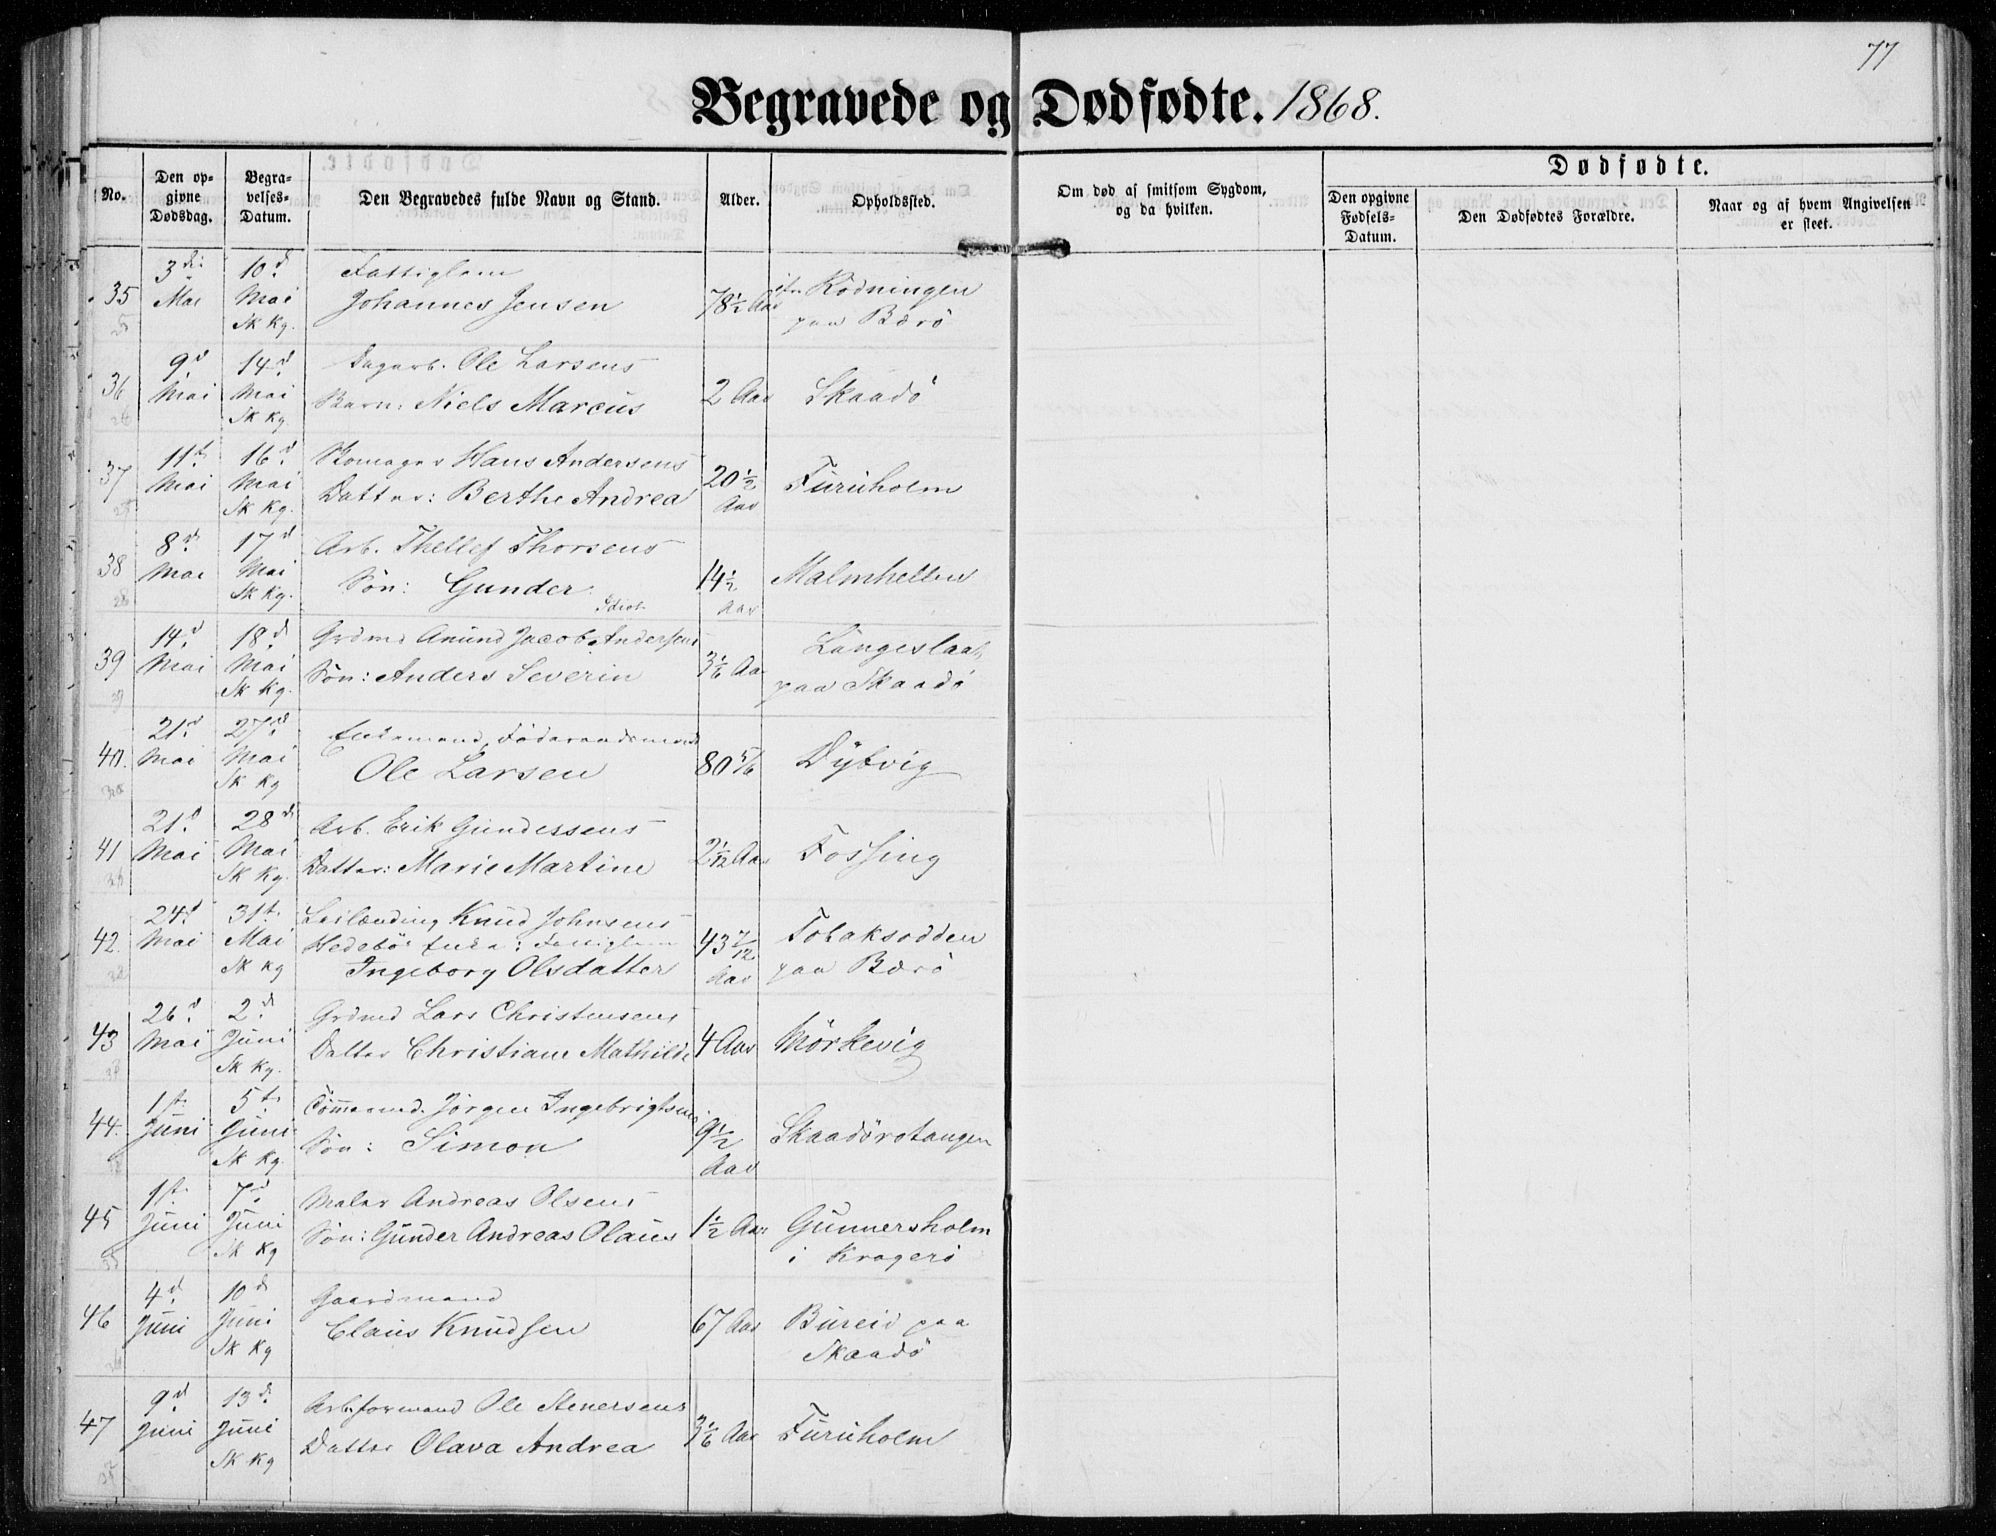 77
Begravede og Dødfødte. 1868.
No.
Den opgivne Dødsdag.
Begravelses-Datum.
Den Begravedes fulde Navn og Stand.
Alder.
Opholdssted.
Om død af smitsom Sygdom, og da hvilken.
Dødfødte.
Den opgivne Fødsels-Datum.
Den Dødfødtes Forældre.
Naar og af hvem Angivelsen er skeet.
35 3die Mai 10d Mai Sk Kg. Fattiglem
Johannes Jensen 78 1/2 Aar Rödningen
paa Bærö
36 9d Mai 14d Mai Sk Kg. Dagarb. Ole Larsens
Barn: Niels Marcus 2 Aar Skaadö
37 11te Mai 16d Mai Sk Kg. Skomager Hans Andersens
Datter: Berthe Andrea 20 1/2 Aar Furuholm
38 8d Mai 17d Mai Sk Kg. Arb. Thellef Thorsens
Sön: Gunder Idiot 14 1/2 Aar Malmhellen
39 14d Mai 18d Mai Sk Kg. Grdmd Anund Jacob Andersens
Sön: Anders Severin 3 1/6 Aar Langeslaat
paa Skaadö
40. 21d Mai 27d Mai Sk Kg Enkemand, Föderaadsmand
Ole Larsen 80 5/6 Dybvig
41 21d Mai 28d Mai Sk Kg. Arb. Erik Gundersens
Datter: Marie Martine 2 1/12 Aar Fossing
42. 24d Mai 31te Mai Sk Kg Leilænding Knud Johnsens
Hedebö Enke: Fattiglem
Ingeborg Olsdatter 43 7/12 Aar Tobaksodden
paa Bærö
43 26d Mai 2d Juni Sk Kg. Grdmd Lars Christensens
Datter Christiane Mathilde 4 Aar Mörkevig
44. 1ste Juni 5te Juni Sk Kg. Tömmermd. Jörgen Ingebrigtsens
Sön: Simon 9 1/2 Aar Skaadörotangen
45 1ste Juni 7d Juni Sk Kg Maler Andreas Olsens
Sön: Gunder Andreas Olaus 1 1/2 Aar Gunnersholm
i Kragerö
46 4d Juni 10d Juni Sk Kg Gaardmand
Claus Knudsen 67 Aar Bureid paa
Skaadö
47 9d Juni 13d Juni Sk Kg Arb.formand Ole Stenersens
Datter Olava Andrea 3 1/6 Aar Furuholm